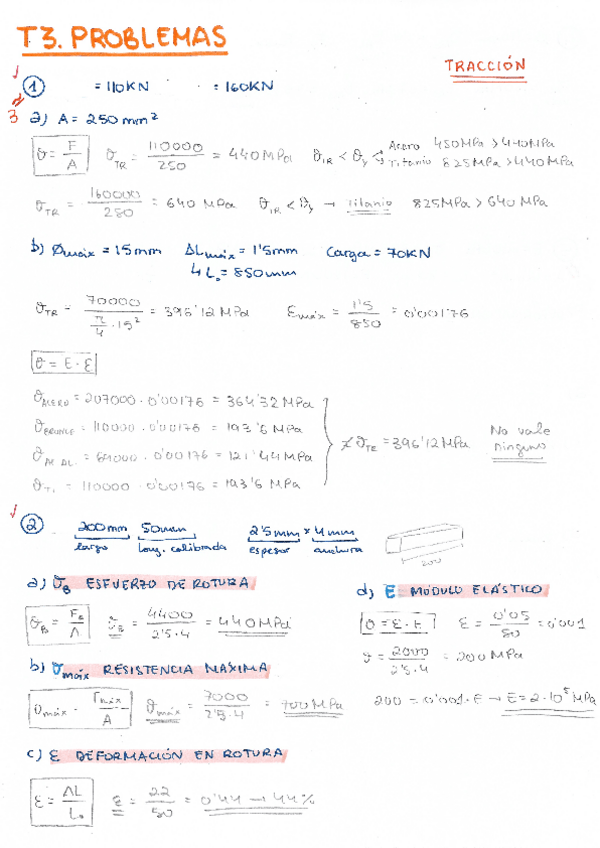 T3. PROBLEMAS
TRACCIÓN
① = 110KN = 160KN
3 a) A = 250 mm²
σ = F/A σTR = 110000/250 = 440MPa σTR < σy Acero 450MPa > 440MPa
Titanio 825MPa > 440MPa
σTR = 160000/250 = 640 MPa σTR < σy → titanio 825MPa > 640 MPa
b) Ømáx = 15mm ΔLmáx = 1'5mm Carga = 70KN
L₀ = 850mm
σTR = 70000/(π/4 · 15²) = 396'12 MPa εmáx = 1'5/850 = 0'00176
σ = E · ε
σACERO = 207000 · 0'00176 = 364'32 MPa
σBRONCE = 110000 · 0'00176 = 193'6 MPa
σAl AL. = 69000 · 0'00176 = 121'44 MPa
σTi = 110000 · 0'00176 = 193'6 MPa
σTE = 396'12 MPa No vale
ninguno
② 200mm 50mm 2'5mm × 4mm
largo long. calibrada espesor anchura
200
a) σB ESFUERZO DE ROTURA
σB = FB/A σB = 4400/2'5·4 = 440MPa
b) σmáx RESISTENCIA MAXIMA
σmáx = Fmáx/A σmáx = 7000/2'5·4 = 700 MPa
c) ε DEFORMACIÓN EN ROTURA
ε = ΔL/L₀ ε = 22/50 = 0'44 → 44%
d) E MÓDULO ELÁSTICO
σ = ε · E ε = 0'05/50 = 0'001
σ = 2000/2'5·4 = 200 MPa
200 = 0'001 · E → E = 2 · 10⁵ MPa